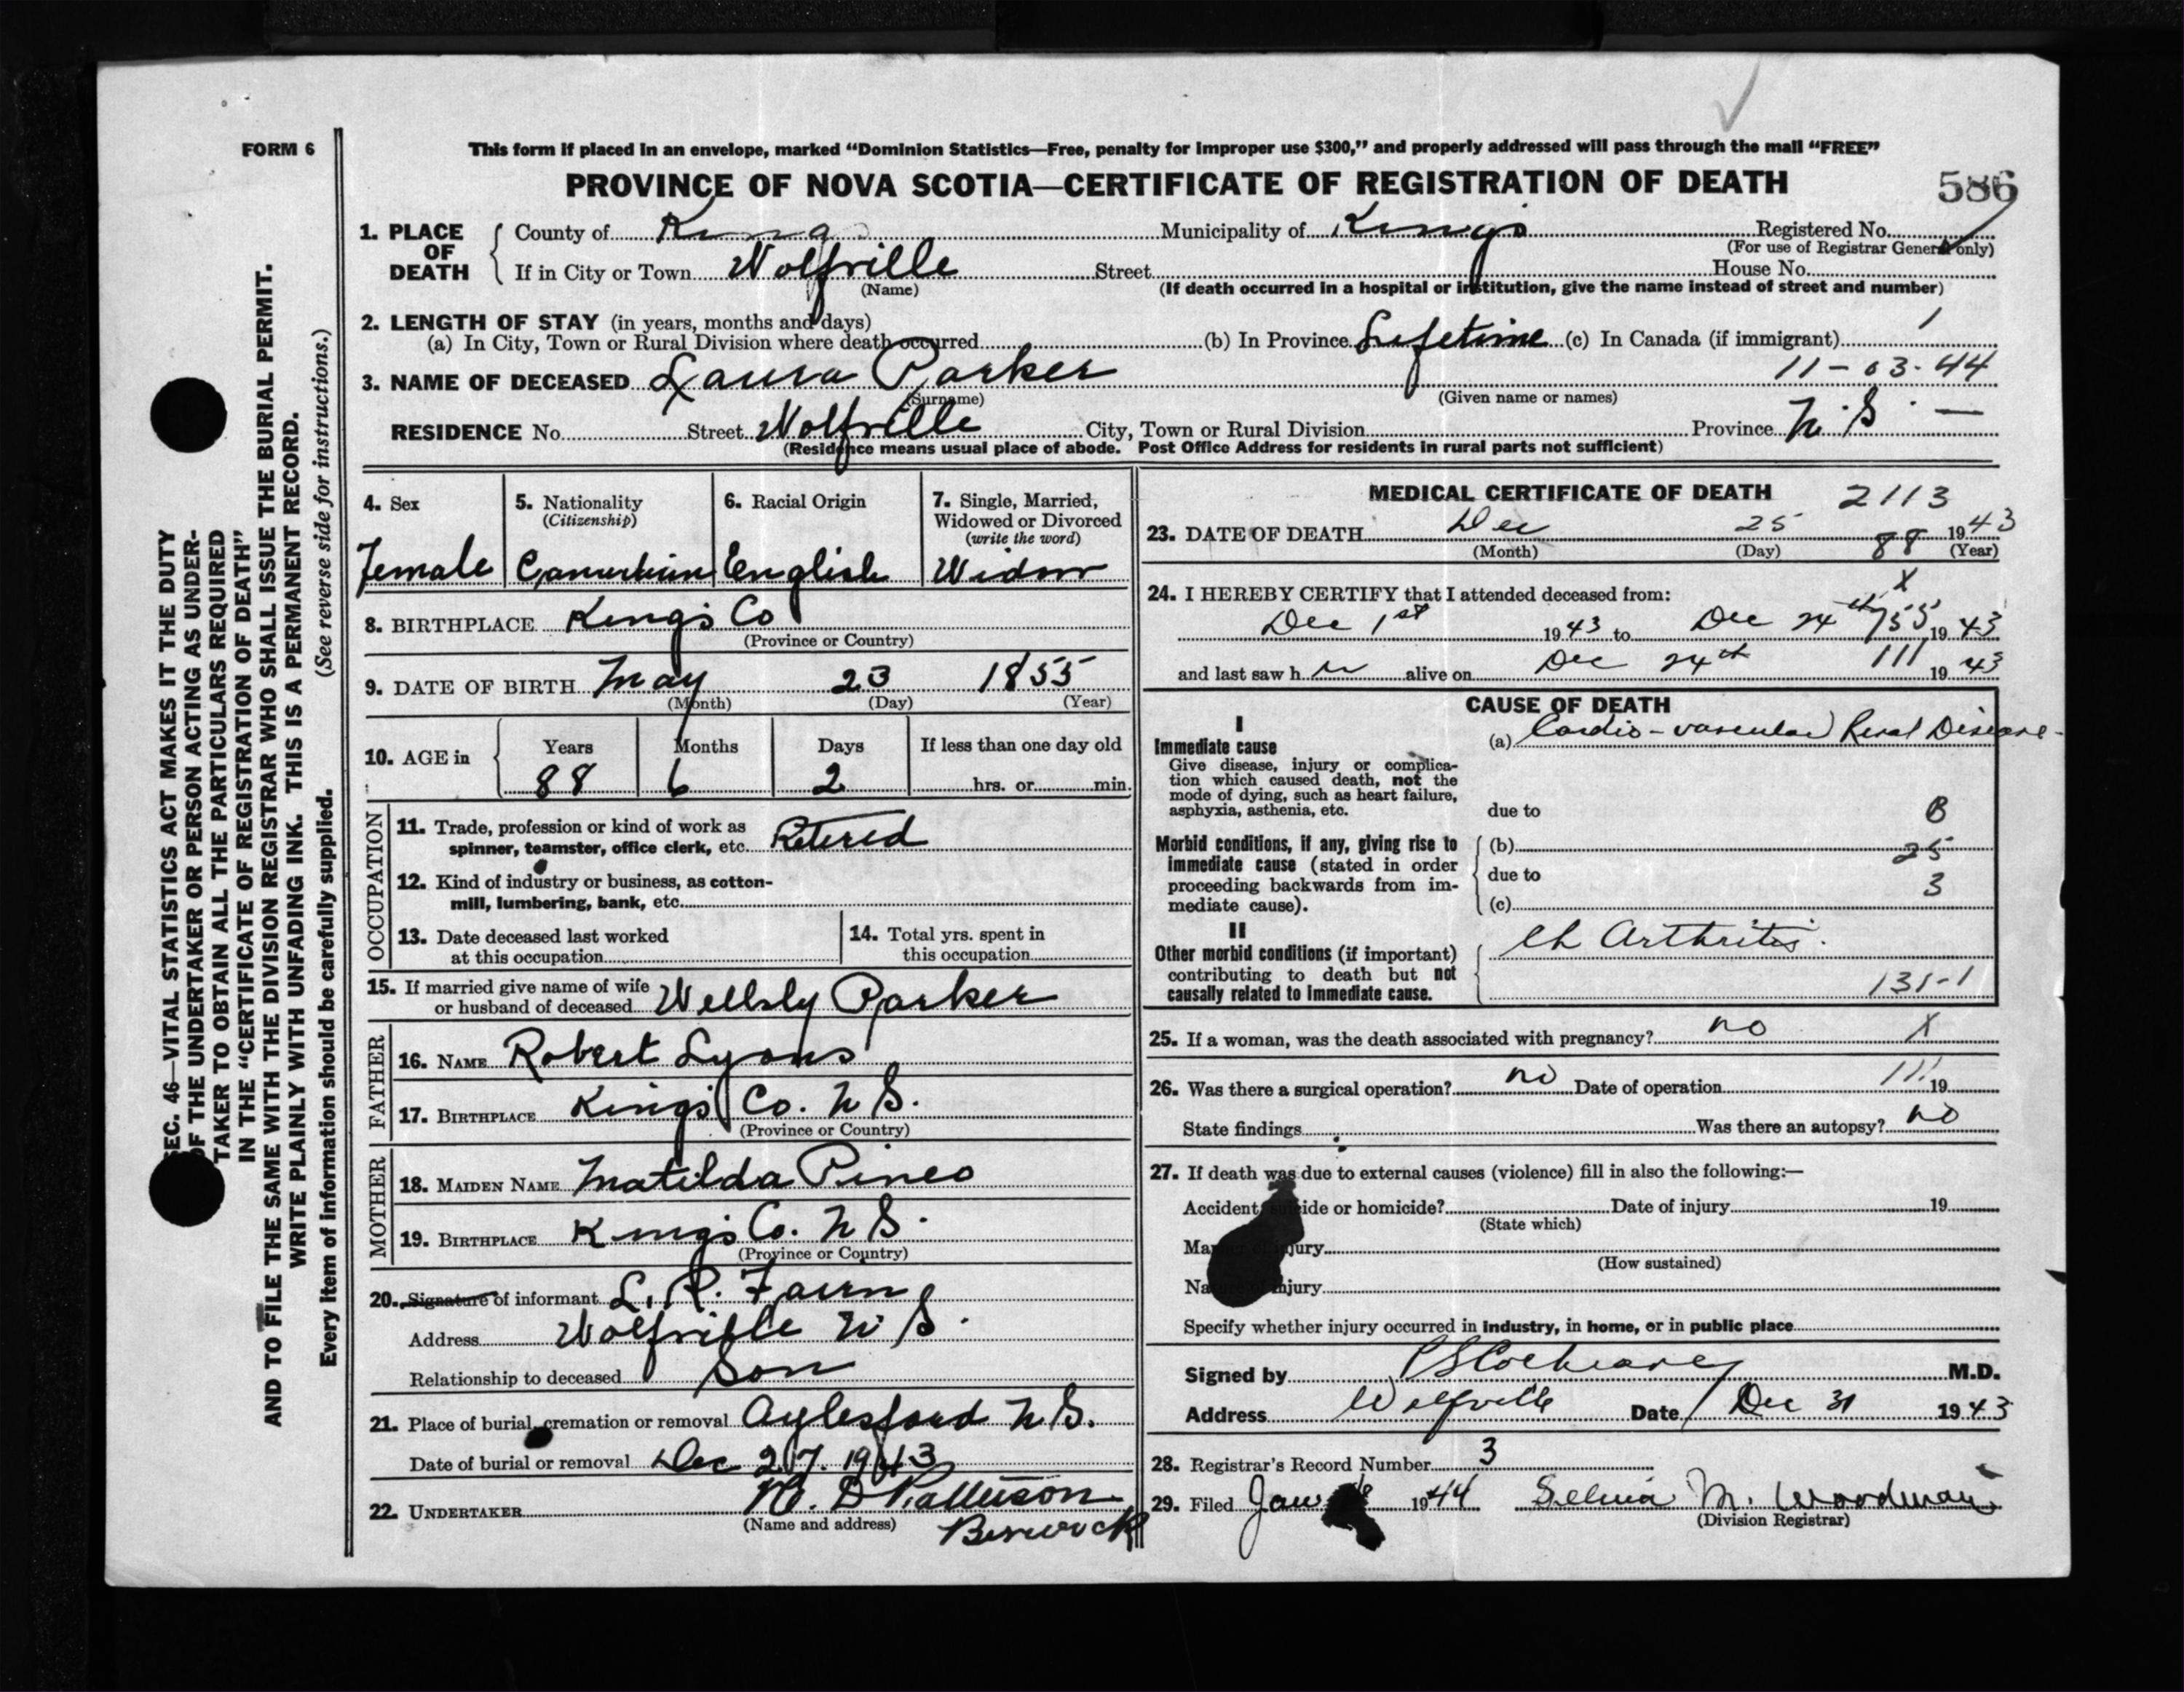 FORM 6
This form if placed in an envelope, marked “Dominion Statistics—Free, penalty for improper use $300,” and properly addressed will pass through the mail “FREE”
PROVINCE OF NOVA SCOTIA—CERTIFICATE OF REGISTRATION OF DEATH
586
1. PLACE OF DEATH County of Kings Municipality of Kings Registered No.
(For use of Registrar General only)
If in City or Town Wolfville Street House No.
(Name) (If death occurred in a hospital or institution, give the name instead of street and number)
2. LENGTH OF STAY (in years, months and days)
(a) In City, Town or Rural Division where death occurred (b) In Province Lifetime (c) In Canada (if immigrant)
3. NAME OF DECEASED Laura Parker 11-03-44
(Surname) (Given name or names)
RESIDENCE No. Street Wolfville City, Town or Rural Division Province N.S.
(Residence means usual place of abode. Post Office Address for residents in rural parts not sufficient)
4. Sex
Female
5. Nationality
(Citizenship)
Canadian
6. Racial Origin
English
7. Single, Married,
Widowed or Divorced
(write the word)
Widow
8. BIRTHPLACE Kings Co
(Province or Country)
9. DATE OF BIRTH May 23 1855
(Month) (Day) (Year)
10. AGE in Years Months Days If less than one day old
88 6 2 hrs. or min.
OCCUPATION
11. Trade, profession or kind of work as
spinner, teamster, office clerk, etc. Retired
12. Kind of industry or business, as cotton-
mill, lumbering, bank, etc.
13. Date deceased last worked
at this occupation
14. Total yrs. spent in
this occupation
15. If married give name of wife
or husband of deceased Wellsly Parker
FATHER
16. NAME Robert Lyons
17. BIRTHPLACE Kings Co. N S.
(Province or Country)
MOTHER
18. MAIDEN NAME Matilda Pineo
19. BIRTHPLACE Kings Co. N S.
(Province or Country)
20. Signature of informant L. R. Fairn
Address Wolfville N S.
Relationship to deceased Son
21. Place of burial, cremation or removal Aylesford N S.
Date of burial or removal Dec 27. 1943
22. UNDERTAKER D Patterson
(Name and address) Berwick
MEDICAL CERTIFICATE OF DEATH 2113
23. DATE OF DEATH Dec 25 1943
(Month) (Day) 88 (Year)
24. I HEREBY CERTIFY that I attended deceased from: X
Dec 1st 1943 to Dec 24th 755 1943
and last saw h er alive on Dec 24th 111 1943
CAUSE OF DEATH
I
Immediate cause
(a) Cardio-vascular Renal Disease-
Give disease, injury or complica-
tion which caused death, not the
mode of dying, such as heart failure,
asphyxia, asthenia, etc.
due to B
Morbid conditions, if any, giving rise to
immediate cause (stated in order
proceeding backwards from im-
mediate cause).
(b) 25
due to 3
(c)
II
Other morbid conditions (if important)
contributing to death but not
causally related to immediate cause.
Ch Arthritis.
131-1
25. If a woman, was the death associated with pregnancy? no X
26. Was there a surgical operation? no Date of operation 111 19
State findings Was there an autopsy? no
27. If death was due to external causes (violence) fill in also the following:—
Accident, suicide or homicide? Date of injury 19
(State which)
Manner of injury
(How sustained)
Nature of injury
Specify whether injury occurred in industry, in home, or in public place
Signed by Cochrane M.D.
Address Wolfville Date Dec 31 1943
28. Registrar's Record Number 3
29. Filed Jan 1944 M. Woodman
(Division Registrar)
SEC. 46—VITAL STATISTICS ACT MAKES IT THE DUTY
OF THE UNDERTAKER OR PERSON ACTING AS UNDER-
TAKER TO OBTAIN ALL THE PARTICULARS REQUIRED
IN THE “CERTIFICATE OF REGISTRATION OF DEATH”
AND TO FILE THE SAME WITH THE DIVISION REGISTRAR WHO SHALL ISSUE THE BURIAL PERMIT.
WRITE PLAINLY WITH UNFADING INK. THIS IS A PERMANENT RECORD.
Every item of information should be carefully supplied. (See reverse side for instructions.)